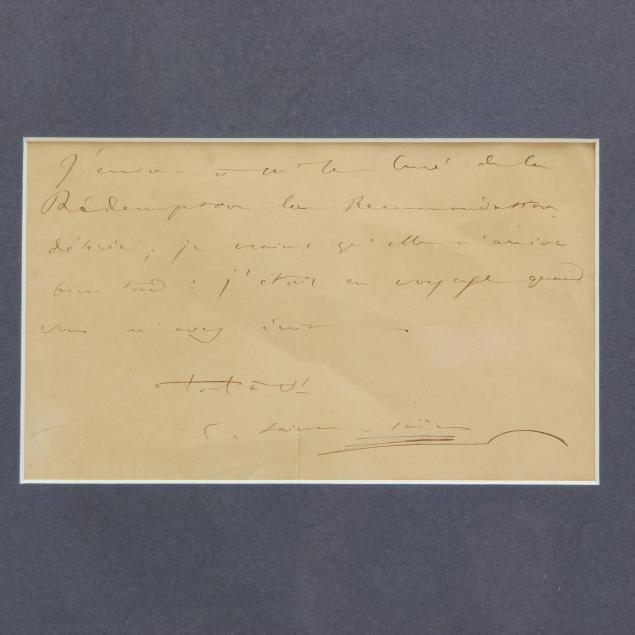 J'envoie à Mr le Curé de la
Rédemption la Recommandation
désirée ; je crains qu'elle n'arrive
bien tard : j'étais en voyage quand
vous m'avez écrit
tout à v!
C. Saint-Saëns